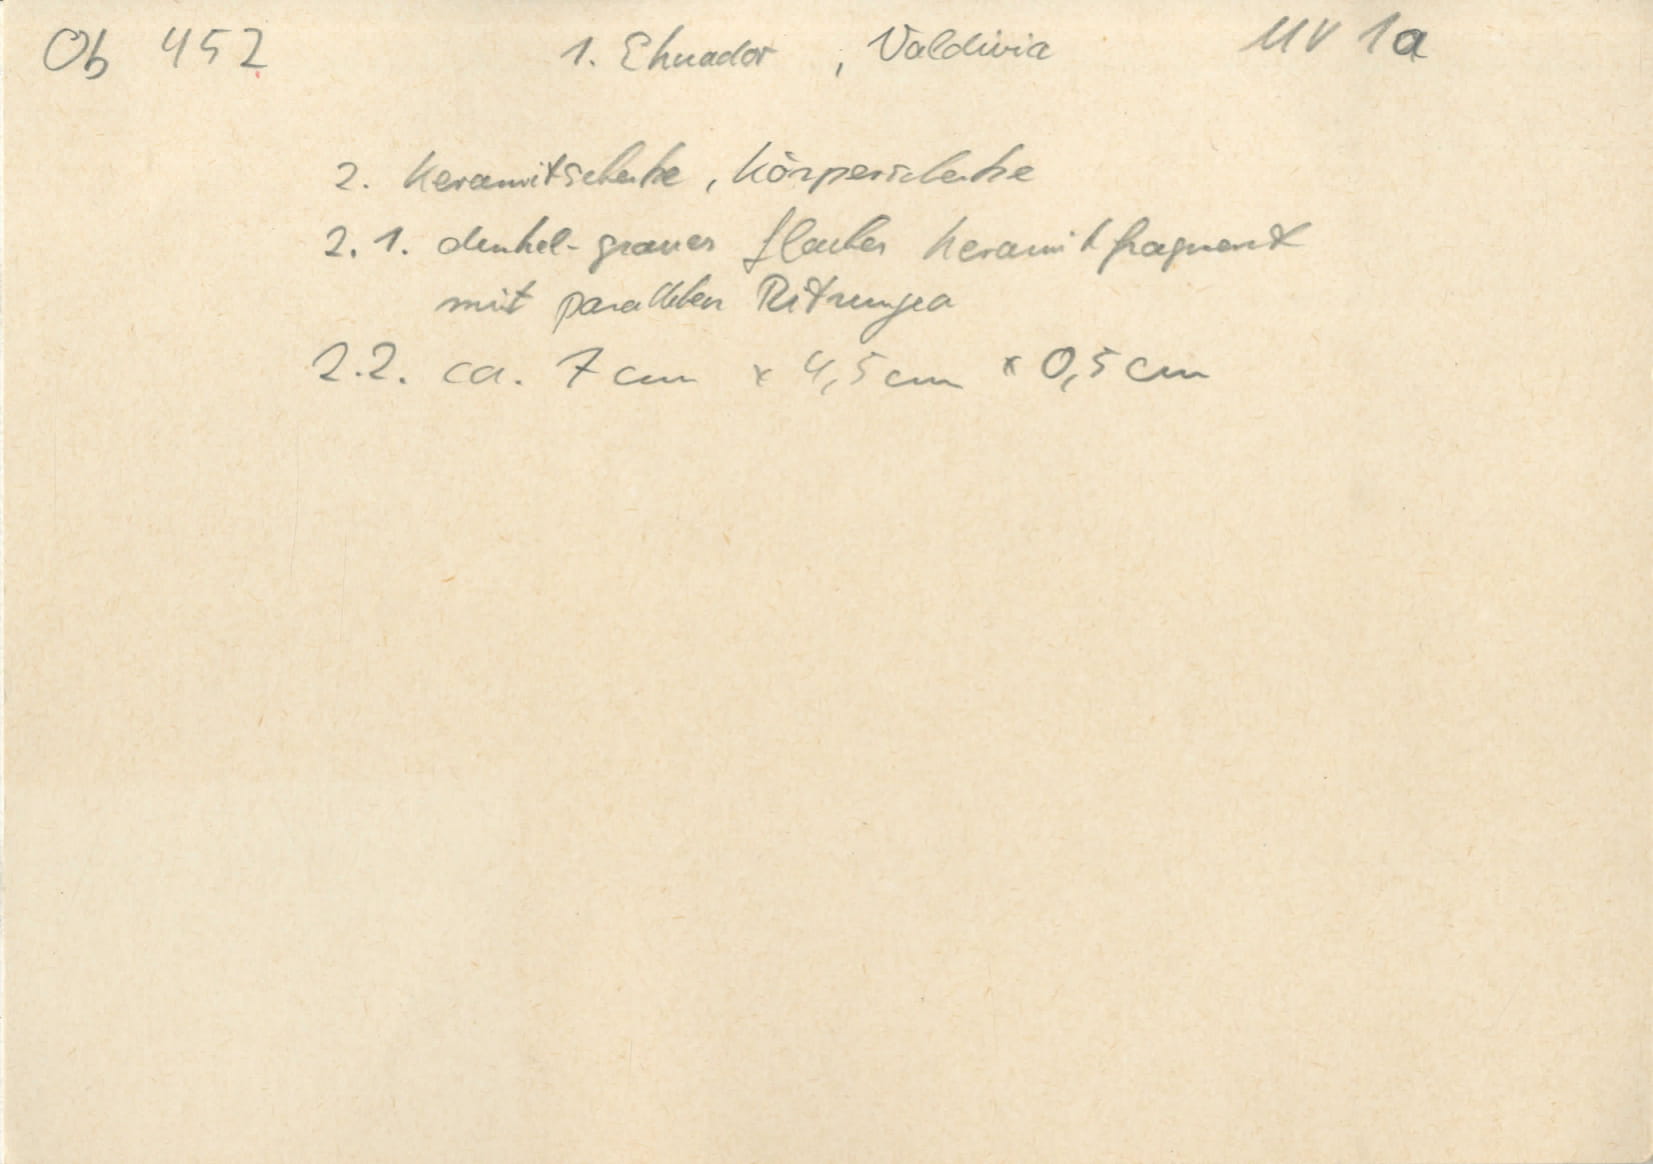 Ob 452 1. Ekuador, Valdivia MV 1a
2. Keramikscherbe, Körperscherbe
2.1. dunkel-graues flaches Keramikfragment
mit parallelen Ritzungen
2.2. ca. 7 cm x 4,5 cm x 0,5 cm